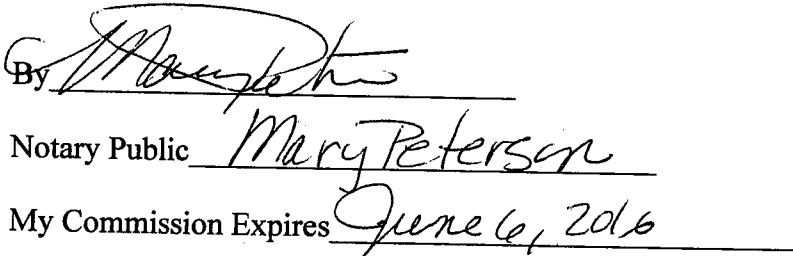 By Mary Peterson
Notary Public Mary Peterson
My Commission Expires June 6, 2016